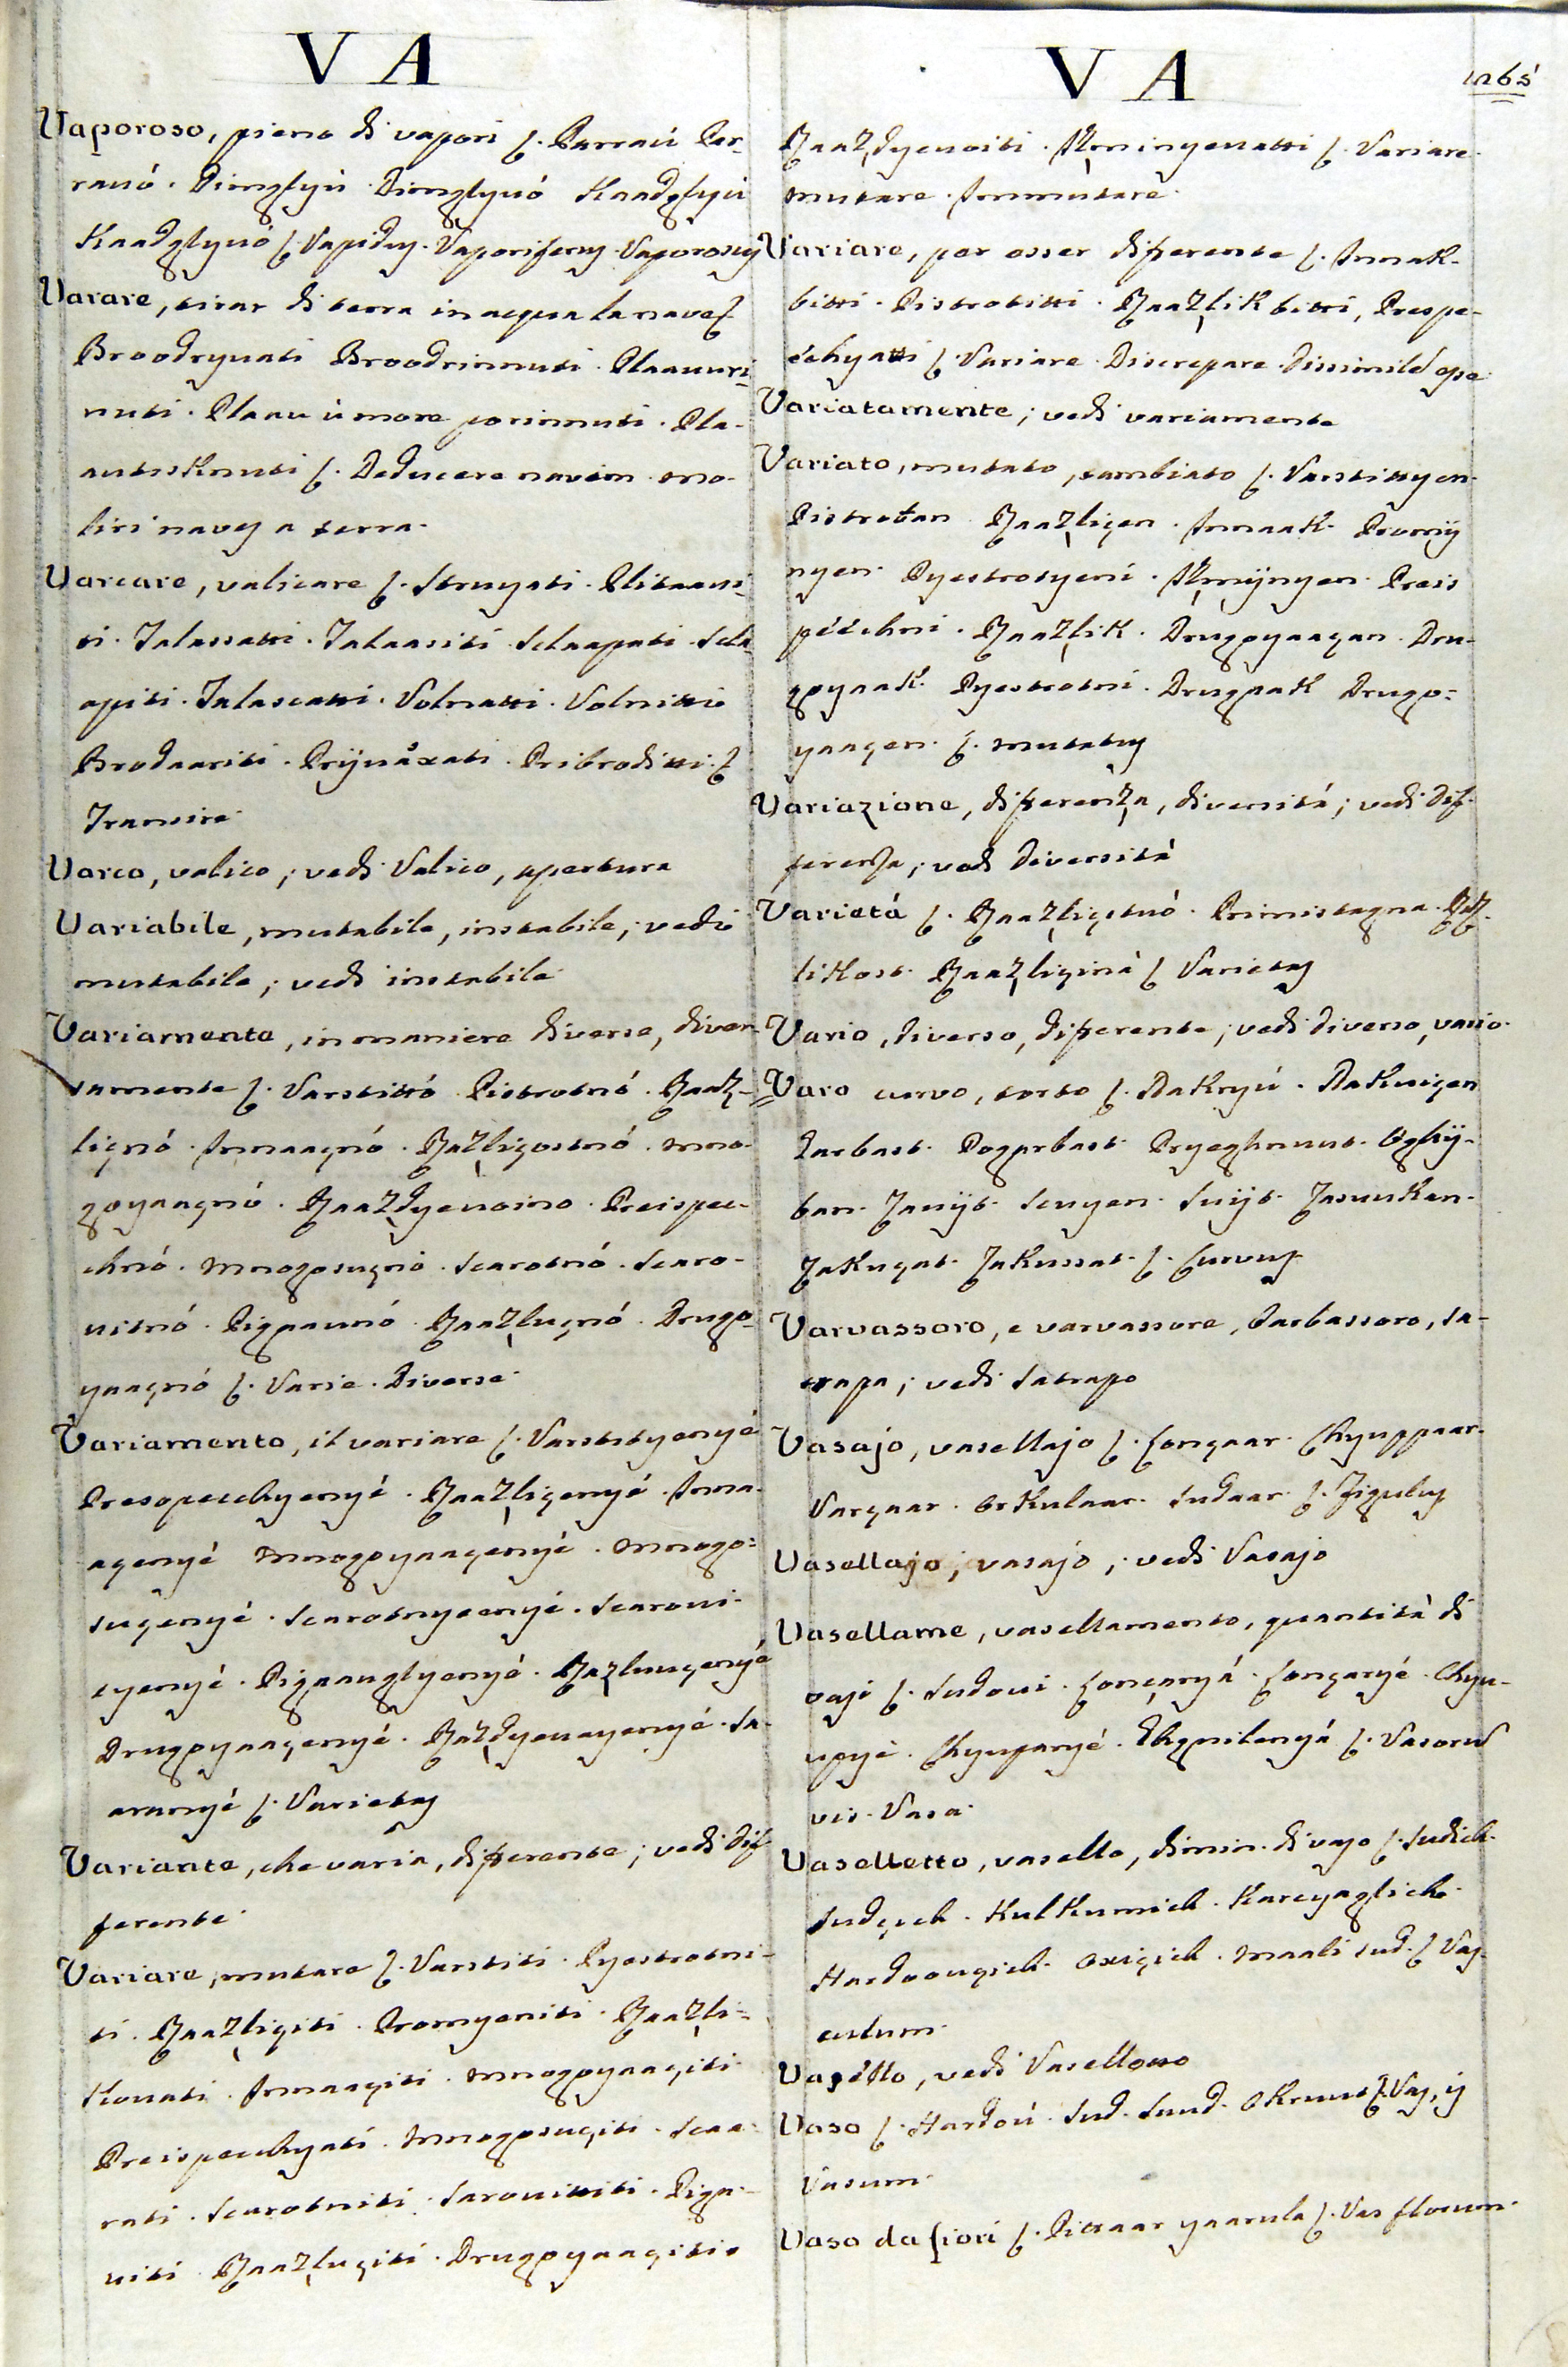 V A
Vaporoso, pieno di vapori ſ. Parraú Par-
ranó. Dimglyú Dimglyuó Kaadglyú
Kaadglyuó ſ. Vapidus. Vaporiferus. Vaporosus
Varare, tirar di terra in acqua la nave ſ.
Broodryuati Broodrinnuti. Plaauuri-
nuti. Plaau ú more porinnuti. Pla-
autisknuti ſ. Deducere navim. mo-
liri naves a terra.
Varcare, valicare ſ. Struyati. Plitaaui-
ti. Talassatti. Talaasiti Sclaapati. Scla-
apiti. Talascatti. Volnatti. Volnitti
Brodaariti. Prijuáxati. Pribroditti. ſ.
Transire.
Varco, valico; vedi Valico, apertura
Variabile, mutabile, instabile; vedi
mutabile; vedi instabile
Variamente, in maniere diverse, diver-
samente ſ. Varstittó Pistrotnó. Raaz-
licnó. Innaacnó. Razlicostnó. mno-
goyaacnó. Raazdyenoino. Preispee-
chnó. Mnogosucnó. Scarotnó. Scaro-
uitnó. Pigaaunó. Raazlucnó. Drugo-
yaacnó ſ. Varie. Diverse.
Variamento, il variare ſ. Varstityenyé
Presopeechyenyé. Raazlicenyé. Inna-
acenyé Mnogoyaacenyé. Mnogo-
sucenyé. Scarotnyeenyé. Scaroui-
tyenyé. Pigaauglyenyé. Razluucenyé
Drugoyaacenyé. Razdyenayenyé. Sa-
aranyé ſ. Varietas
Variante, che varia, differente; vedi dif-
ferente.
Variare, mutare ſ. Varstiti. Pyestrotni-
ti. Raazliciti. Promyeniti. Raazli-
kouati. Innaaciti. Mnogoyaaciti.
Preispeechyati. Mnogosuciti. Scaa-
rati. Scarotniti. Sarouititi. Piga-
uiti Raazluciti. Drugoyaaciti
V A
1265
Raazdyenoiti. Izminyenatti ſ. Variare.
mutare. Immutare.
Variare, per esser differente ſ. Innak-
bitti. Pistrotitti. Raazlik bitti, Preispe-
échyatti ſ. Variare. Discrepare. Dissimilé esse.
Variatamente; vedi variamente
Variato, mutato, cambiato ſ. Varstittyen.
Pistrotan Raazlicen. Innaak. Promij
nyen. Pyestrotyení. Izmijnyen. Preis
péechni. Raazlik. Drugoyaacan. Dru-
goyaak. Pyestrotni. Drugaak Drugo-
yaacen. ſ. mutatus
Variazione, differenza, diversitá; vedi dif-
ferenza; vedi diversitá
Varietá ſ. Raazlicstuó. Primistagna. Raz-
likost. Raazliciná ſ. Varietas
Vario, diverso, differente; vedi diverso, vario.
Varo curvo, torto ſ. Nakryú. Nakuicen
Garbast. Pogarbast. Pryeghnuut. Oghij-
ban. Zauijt. Scuyen. Suijt. Zasuukan.
Zakucat. Zakussat. ſ. Curvus
Varvassoro, e varvassore, barbassoro, sa-
trapa; vedi Satrapo
Vasajo, vasellajo ſ. Loncaar. Chyuppaar.
Varcaar. Orkulaar. Sudaar. ſ. Figulus
Vasellajo; vasajo; vedi Vasajo
Vasellame, vasellamento, quantitá di
vasi ſ. Sudoui. Loncaryá. Loncaryé. Chyu-
upyé. Chyuparyé. Ghgnilenyá ſ. Vasorum
vis. Vasa.
Vaselletto, vasello, dimin. di vaso ſ. Sudich
Sudcich. Kulkumich. Karcyaglich.
Hardooucich. Oxicich. maali sud. ſ. Vas-
culum.
Vasetto, vedi Vaselletto
Vaso ſ. Hardoú. Sud. Suud. Okruut ſ. Vas, is
Vasum.
Vaso da fiori ſ. Pittaar yaarula ſ. Vas florum.